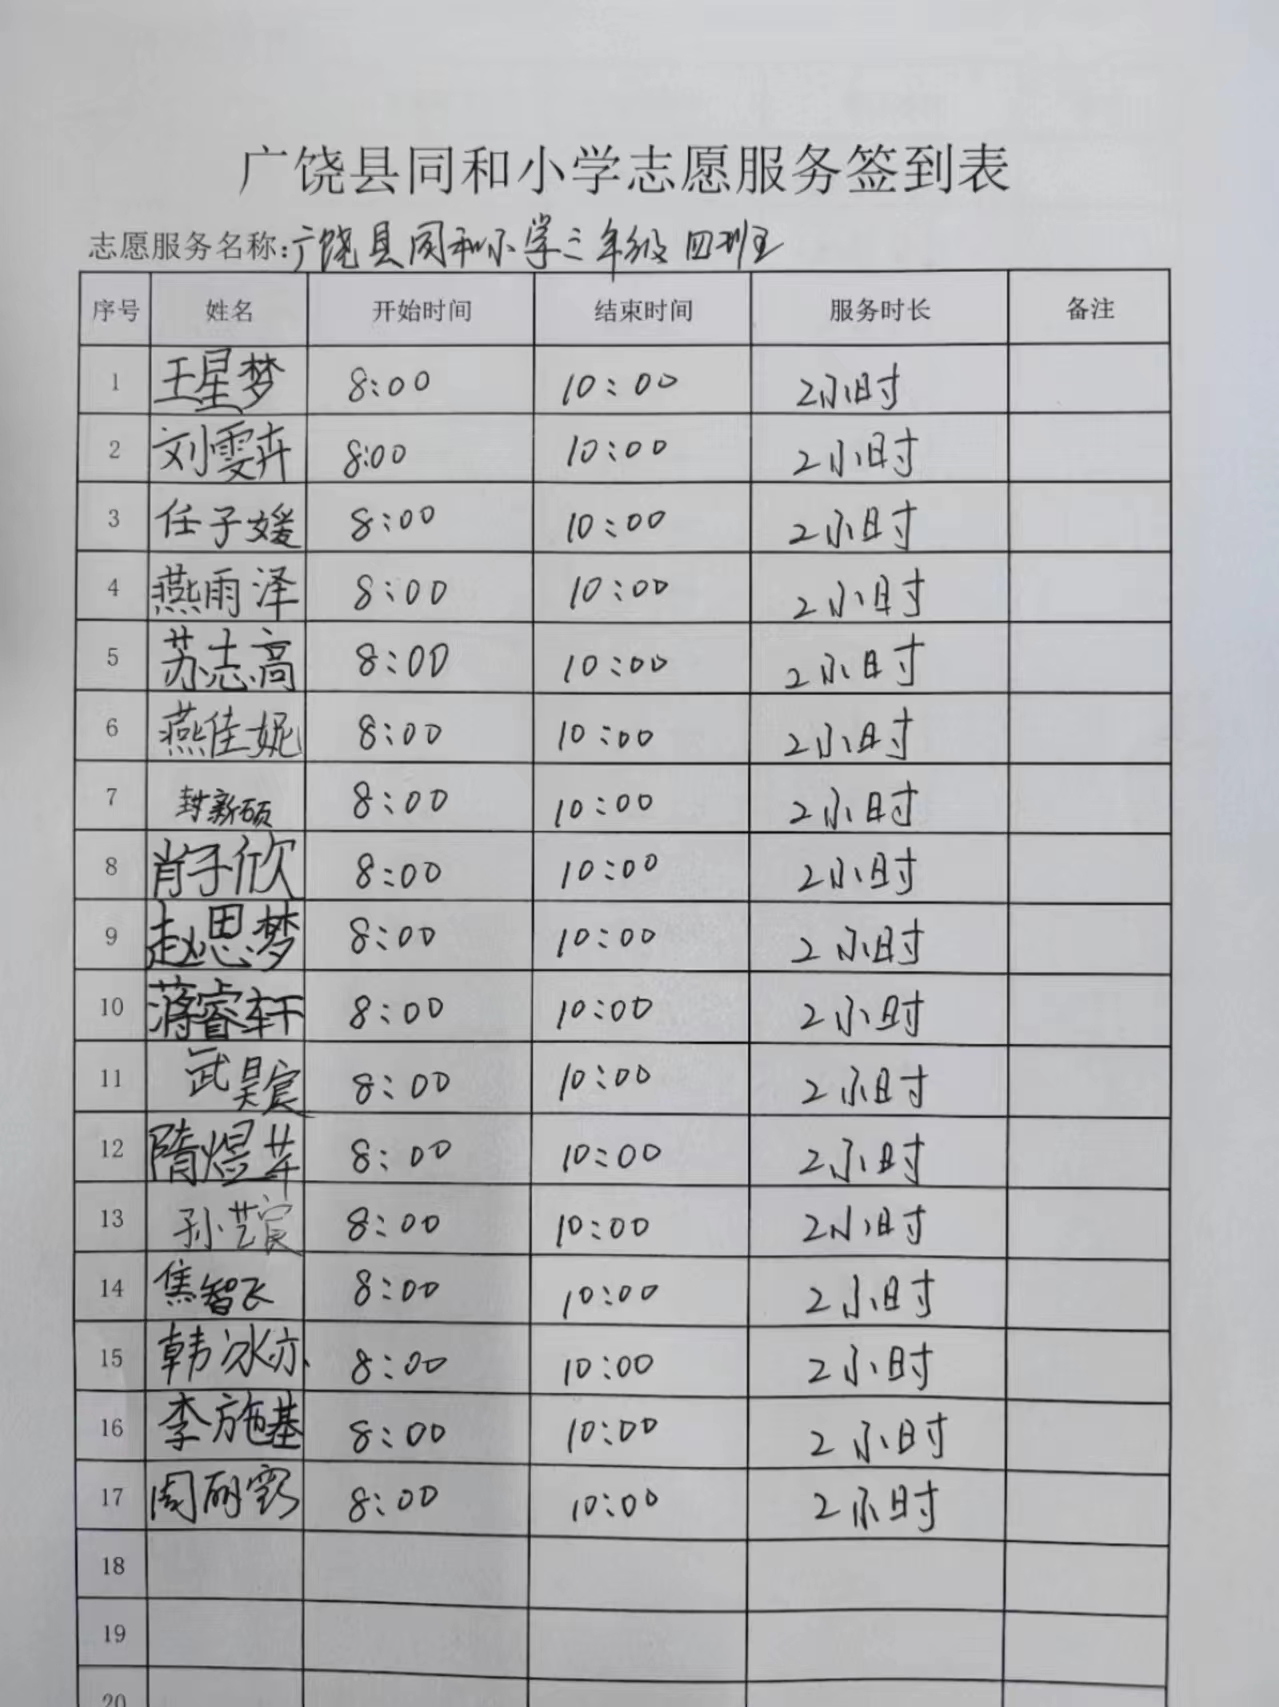 广饶县同和小学志愿服务签到表
志愿服务名称:广饶县同和小学三年级四班
序号 姓名 开始时间 结束时间 服务时长 备注
1 王星梦 8:00 10:00 2小时
2 刘雯卉 8:00 10:00 2小时
3 任子媛 8:00 10:00 2小时
4 燕雨泽 8:00 10:00 2小时
5 苏志高 8:00 10:00 2小时
6 燕佳妮 8:00 10:00 2小时
7 封新硕 8:00 10:00 2小时
8 肖子欣 8:00 10:00 2小时
9 赵思梦 8:00 10:00 2小时
10 蒋睿轩 8:00 10:00 2小时
11 武昊宸 8:00 10:00 2小时
12 隋煜 8:00 10:00 2小时
13 孙艺宸 8:00 10:00 2小时
14 焦智飞 8:00 10:00 2小时
15 韩冰亦 8:00 10:00 2小时
16 李施基 8:00 10:00 2小时
17 周 8:00 10:00 2小时
18
19
20